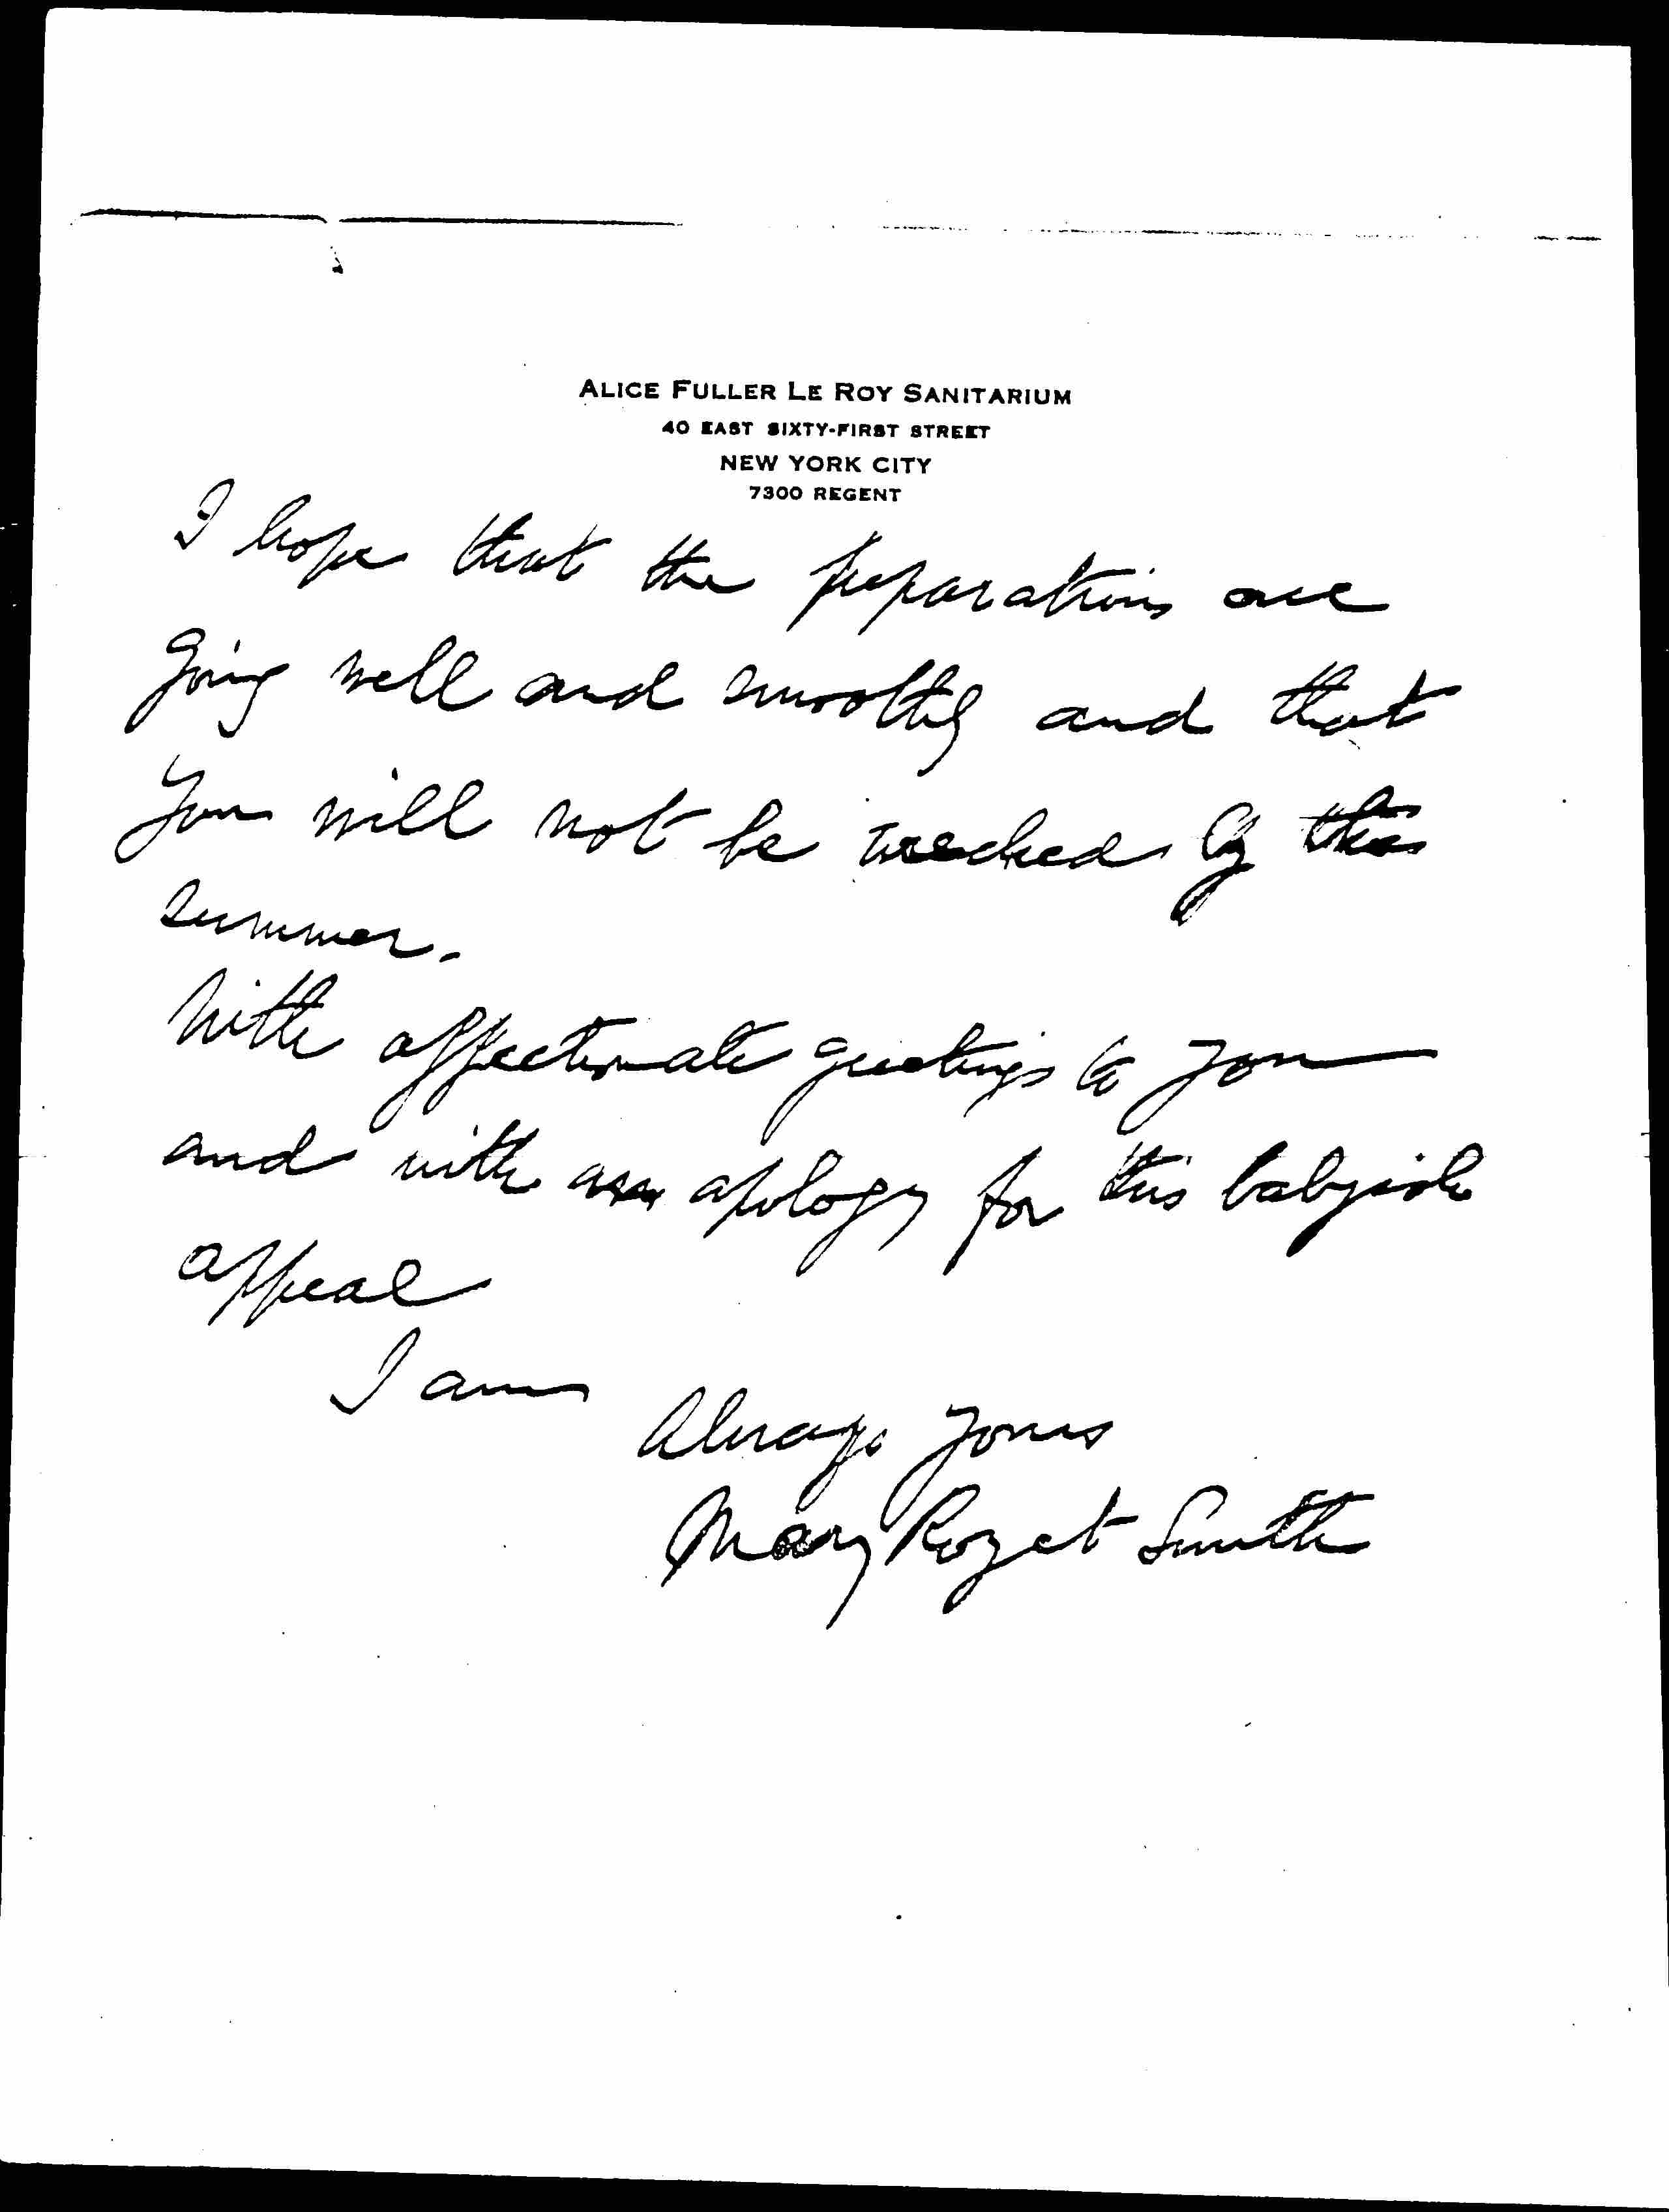 ALICE FULLER LE ROY SANITARIUM
40 EAST SIXTY-FIRST STREET
NEW YORK CITY
7300 REGENT
I hope that the preparations are
going well and smoothly and that
you will not be wrecked by this
summer.
With affectionate greetings to you
and with an apology for this babyish
appeal
I am
Always yours
Mary Rozet Smith